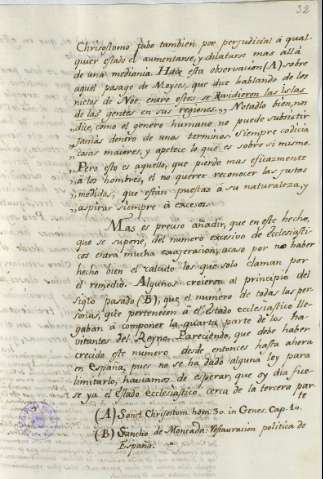 32
Chrisostomo tubo tambien por perjudicial á qual-
quier estado el aumentarse, y dilatarse mas allá
de una mediania. Hace esta observacion (A) sobre
aquel pasage de Moyses, que dice hablando de los
nietos de Nöe: entre estos se dividieron las islas
de las gentes en sus regiones. „Notadlo bien, nos
„dice, como el genero humano no puede subsistir
„jamás dentro de unos terminos. Siempre codicia
„cosas maiores, y apetece lo que es sobre si mismo.
„Pero esto es aquello, que pierde mas eficazmente
„á los hombres, el no querer reconocer las justas
„medidas, que están puestas á su naturaleza, y
„aspirar siempre á excesos.
Mas es preciso añadir, que en este hecho,
que se supone, del numero excesivo de Ecclesiasti-
cos entra mucha exageracion, acaso por no haber
hecho bien el calculo los que solo claman por
el remedio. Algunos creieron al principio del
siglo pasado (B), que el numero de todas las per-
sonas, que pertenecen á el Estado ecclesiastico lle-
gaban á componer la quarta parte de los ha-
vitantes del Reyno. Pareciendo, que debe haber
crecido este numero desde entonces hasta ahora
en España, pues no se ha dado alguna ley para
limitarlo, haviamos de esperar que oy dia fice-
se ya el Estado Ecclesiastico cerca de la tercera par-
te
(A) Sanct. Chrisostom. hom. 30. in Genes. Cap. 10.
(B) Sancho de Moncada: restauracion politica de
España.